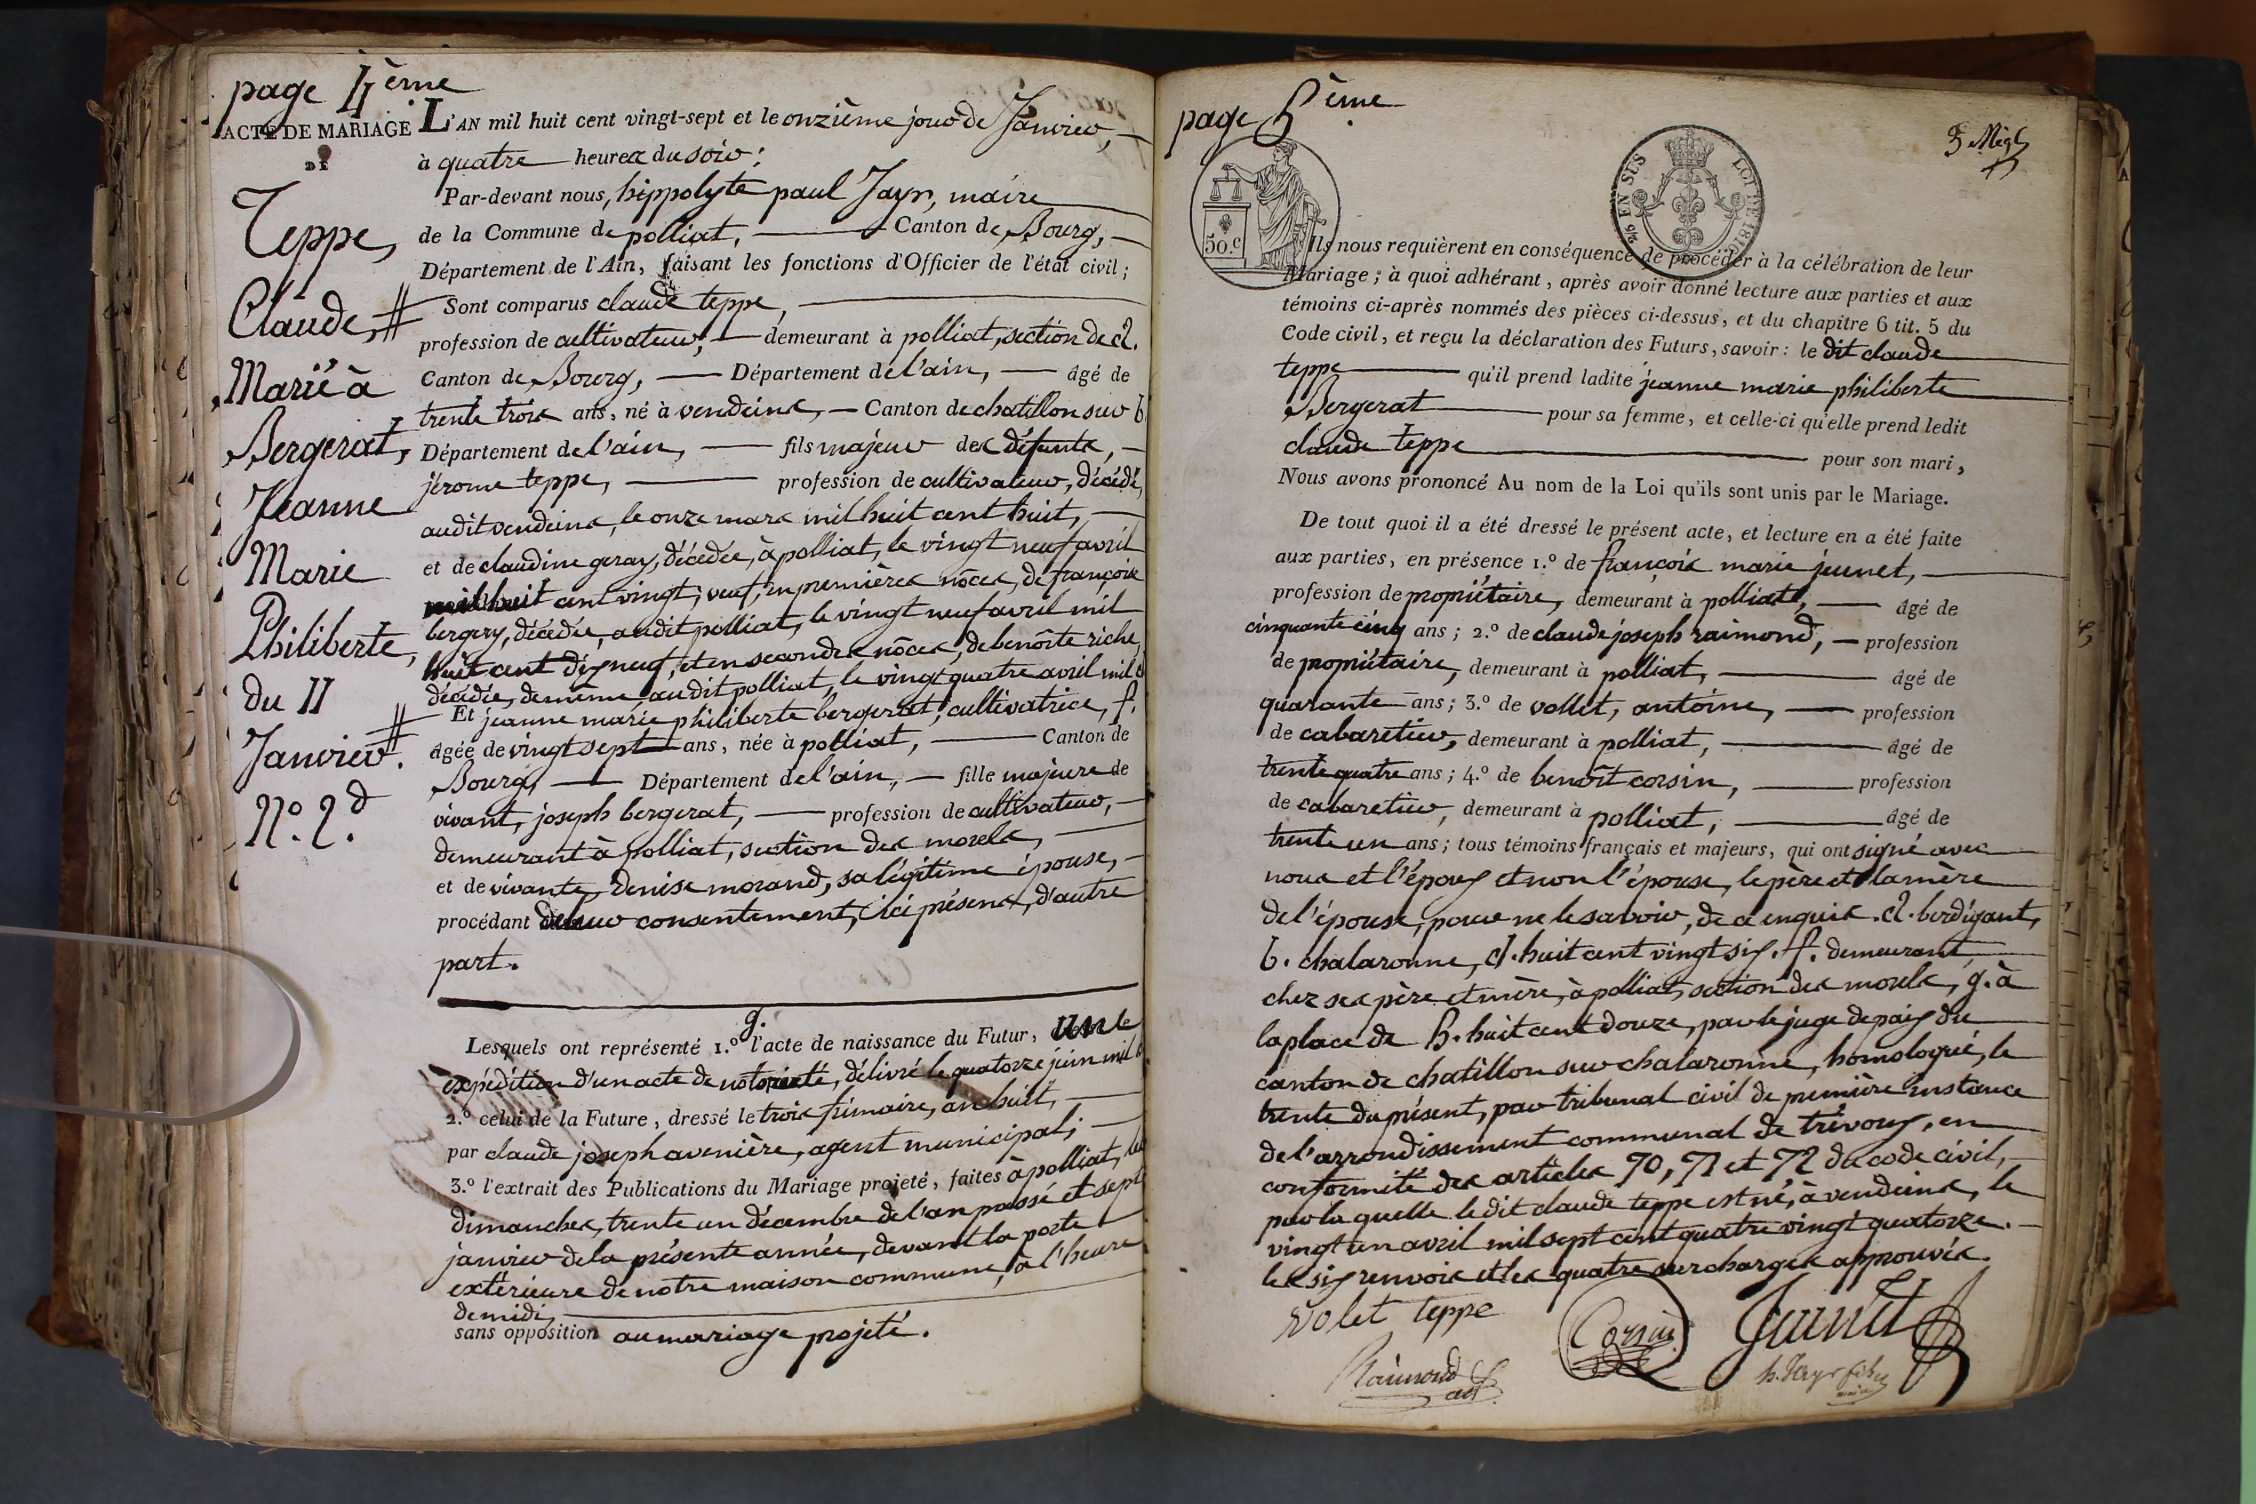 page 4ème
ACTE DE MARIAGE
DE
Teppe,
Claude, #
Marié à
Bergerat,
Jeanne
Marie
Philiberte,
du 11
Janvier. #
N.º 2.d
L'AN mil huit cent vingt-sept et le onzième jour de Janvier,
à quatre heures du soir:
Par-devant nous, hippolyte paul Jayr, maire
de la Commune de polliat, Canton de Bourg,
Département de l'Ain, faisant les fonctions d'Officier de l'état civil;
Sont comparus claude teppe,
profession de cultivateur, demeurant à polliat, section de cl.
Canton de Bourg, Département de l'ain, âgé de
trente trois ans, né à vendeins, Canton de chatillon sur b
Département de l'ain, fils majeur des défunts,
jérome teppe, profession de cultivateur, décédé,
audit vendeins, le onze mars mil huit cent huit,
et de claudine geray, décédée, à polliat, le vingt neuf avril
mil huit cent vingt; veuf, en premières nôces, de françoise
bergery, décédée, audit polliat, le vingt neuf avril mil
huit cent dix neuf, et en secondes nôces, de benoîte riche,
décédée, de même, audit polliat, le vingt quatre avril mil d
Et jeanne marie philiberte bergerat, cultivatrice, f.
âgée de vingt sept ans, née à polliat, Canton de
Bourg, Département de l'ain, fille majeure de
vivant, joseph bergerat, profession de cultivateur,
demeurant à polliat, section des morels,
et de vivante, denise morand, sa légitime épouse,
procédant de leur consentement, ici présens, d'autre
part.
g.
Lesquels ont représenté 1.º l'acte de naissance du Futur, une
expédition d'un acte de notoriété, délivré le quatorze juin mil h
2.º celui de la Future, dressé le trois frimaire, an huit,
par claude joseph avenière, agent municipal;
3.º l'extrait des Publications du Mariage projeté, faites à polliat, les
dimanches, trente un décembre de l'an passé et sept
janvier de la présente année, devant la porte
extérieure de notre maison commune, à l'heure
de midi,
sans opposition au mariage projeté.
page 5ème
50.c
2/6 EN SUS
LOI DE 1816
Ils nous requièrent en conséquence de procéder à la célébration de leur
Mariage; à quoi adhérant, après avoir donné lecture aux parties et aux
témoins ci-après nommés des pièces ci-dessus, et du chapitre 6 tit. 5 du
Code civil, et reçu la déclaration des Futurs, savoir: le dit claude
teppe qu'il prend ladite jeanne marie philiberte
Bergerat pour sa femme, et celle-ci qu'elle prend ledit
claude teppe pour son mari,
Nous avons prononcé Au nom de la Loi qu'ils sont unis par le Mariage.
De tout quoi il a été dressé le présent acte, et lecture en a été faite
aux parties, en présence 1.º de françois marie jeunet,
profession de propriétaire, demeurant à polliat, âgé de
cinquante cinq ans; 2.º de claude joseph raimond, profession
de propriétaire, demeurant à polliat, âgé de
quarante ans; 3.º de vollet, antoine, profession
de cabaretier, demeurant à polliat, âgé de
trente quatre ans; 4.º de benoît corsin, profession
de cabaretier, demeurant à polliat, âgé de
trente un ans; tous témoins français et majeurs, qui ont signé avec
nous et l'époux et non l'épouse, le père et la mère
de l'épouse, pour ne le savoir, de ce enquis. cl. berdiyant,
b. chalaronne, d. huit cent vingt six. f. demeurant,
chez ses père et mère, à polliat, section des morels, g. à
la place de h. huit cent douze, par le juge de paix du
canton de chatillon sur chalaronne, homologué, le
trente du présent, par tribunal civil de première instance
de l'arrondissement communal de trévoux, en
conformité des articles 70, 71 et 72 du code civil,
par la quelle le dit claude teppe est né, à vendeins, le
vingt un avril mil sept cent quatre vingt quatorze.
les six renvois et les quatre surcharges approuvés.
Volet teppe Corsin Jeunet
Raimond adj. h. Jayr fils
maire